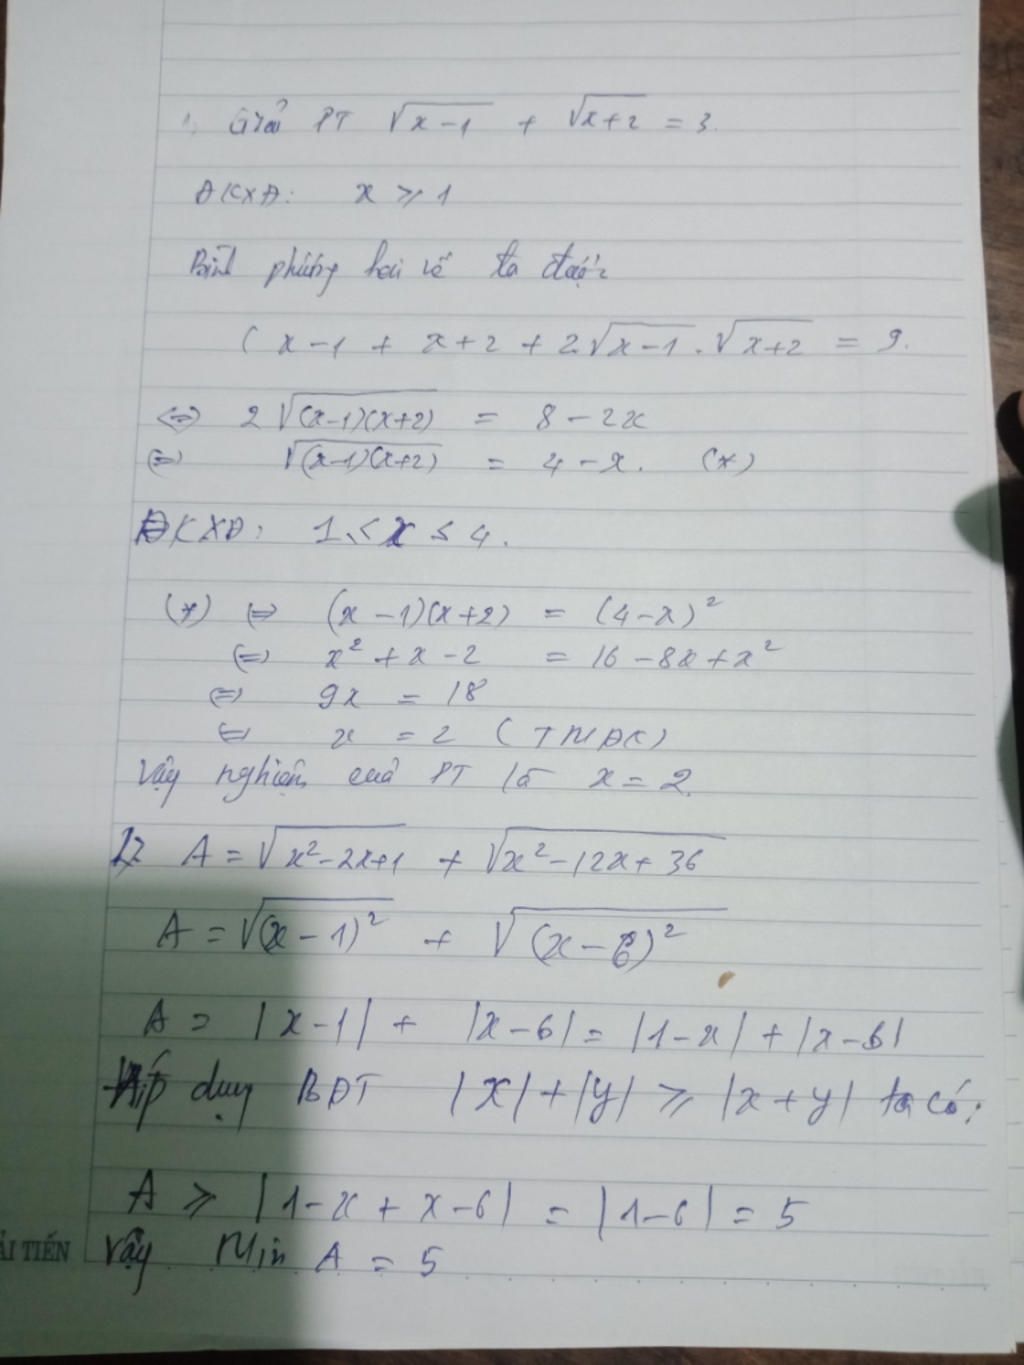 1, Giải PT √x-1 + √x+2 = 3.
ĐKXĐ: x ≥ 1
Bình phương hai vế ta được
( x-1 + x+2 + 2.√x-1 . √x+2 = 9.
⇔ 2√(x-1)(x+2) = 8 - 2x
⇔ √(x-1)(x+2) = 4 - x. (*)
ĐKXĐ: 1 ≤ x ≤ 4.
(*) ⇔ (x-1)(x+2) = (4-x)²
⇔ x² + x - 2 = 16 - 8x + x²
⇔ 9x = 18
⇔ x = 2 (TMĐK)
Vậy nghiệm của PT là x = 2.
2, A = √x²-2x+1 + √x²-12x+36
A = √(x-1)² + √(x-6)²
A = |x-1| + |x-6| = |1-x| + |x-6|
Áp dụng BĐT |x| + |y| ≥ |x+y| ta có:
A ≥ |1-x + x-6| = |1-6| = 5
ẢI TIẾN Vậy Min A = 5